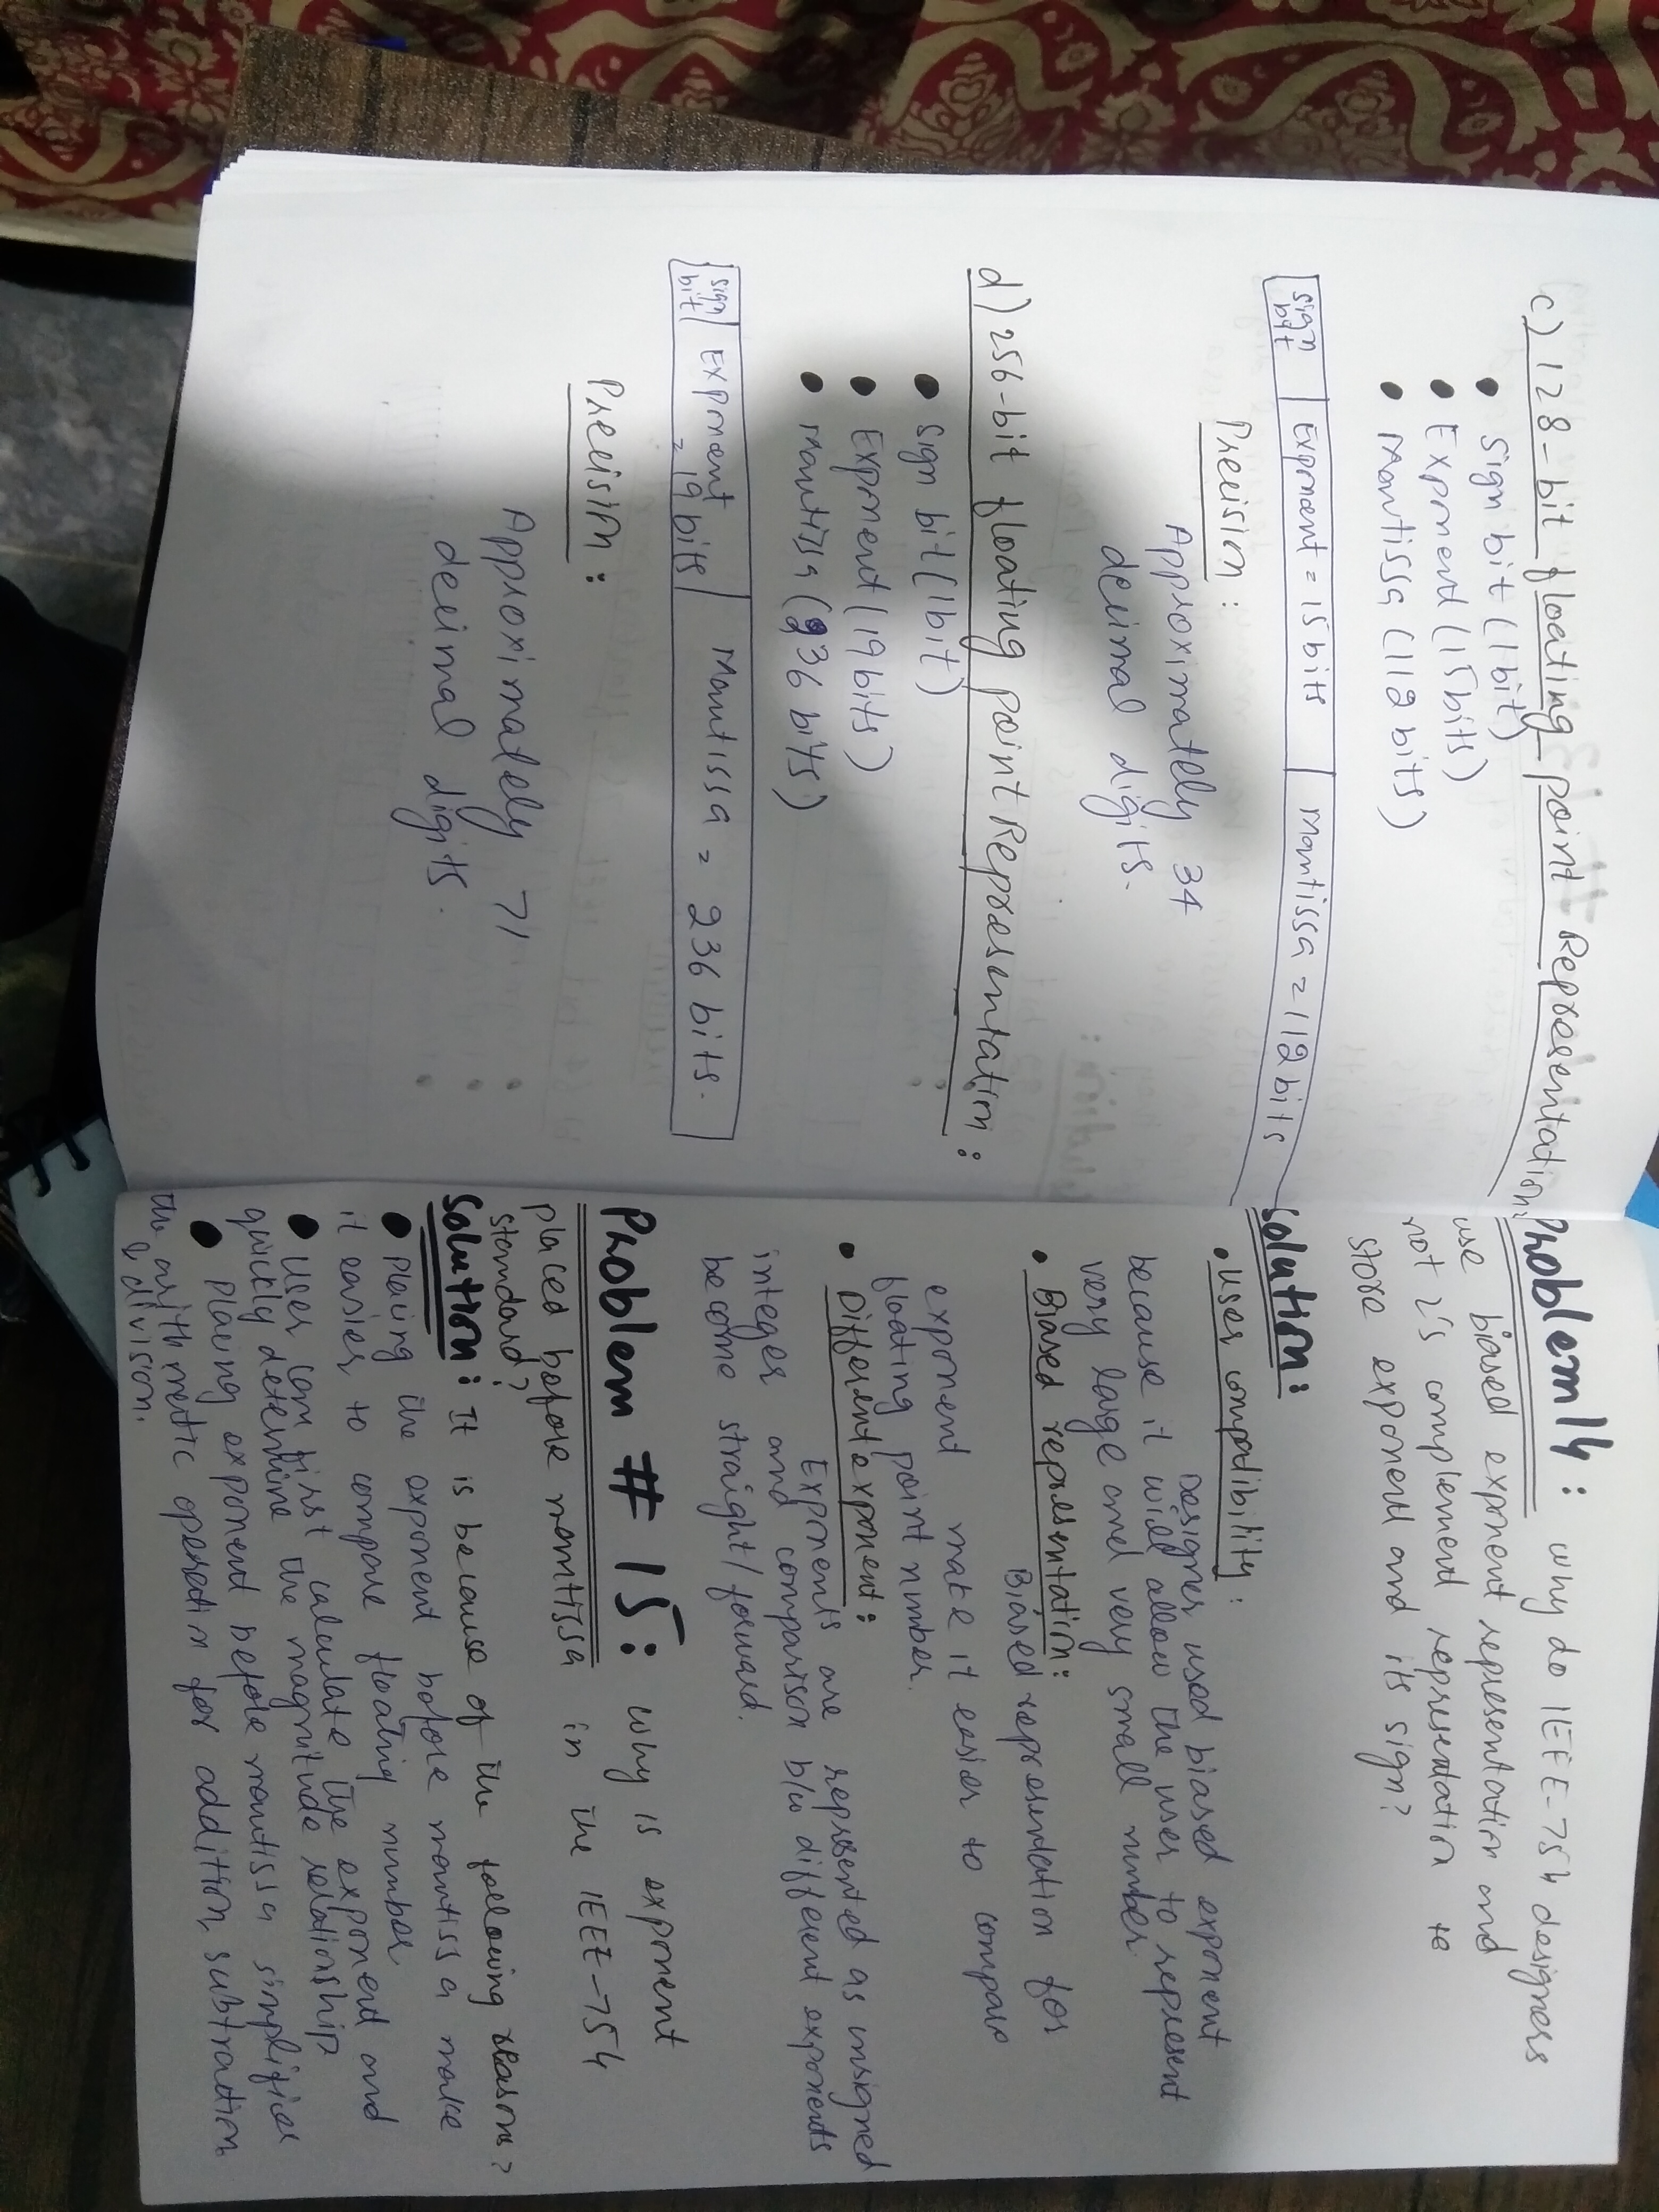 c) 128-bit floating point Representation:
• sign bit (1bit)
• Exponent (15bits)
• Mantissa (112 bits)
sign bit | Exponent = 15 bits | Mantissa = 112 bits
Precision:
Approximately 34
decimal digits.
d) 256-bit floating point Representation:
• sign bit (1bit)
• Exponent (19 bits)
• Mantissa (236 bits)
sign bit | Exponent = 19 bits | Mantissa = 236 bits.
Precision:
Approximately 71
decimal digits.
Problem 14: why do IEEE-754 designers
use biased exponent representation and
not 2's complement representation to
store exponent and its sign?
Solution:
• User compatibility:
Designer used biased exponent
because it will allow the user to represent
very large and very small number.
• Biased representation:
Biased representation for
exponent make it easier to compare
floating point number.
• Different exponent:
Exponents are represented as unsigned
integer and comparison b/w different exponents
become straight/forward.
Problem # 15: why is exponent
placed before mantissa in the IEEE-754
standard?
Solution: It is because of the following reasons?
• Placing the exponent before mantissa make
it easier to compare floating number.
• User can first calculate the exponent and
quickly determine the magnitude relationship.
• Placing exponent before mantissa simplifies
the arithmetic operation for addition, subtraction
& division.